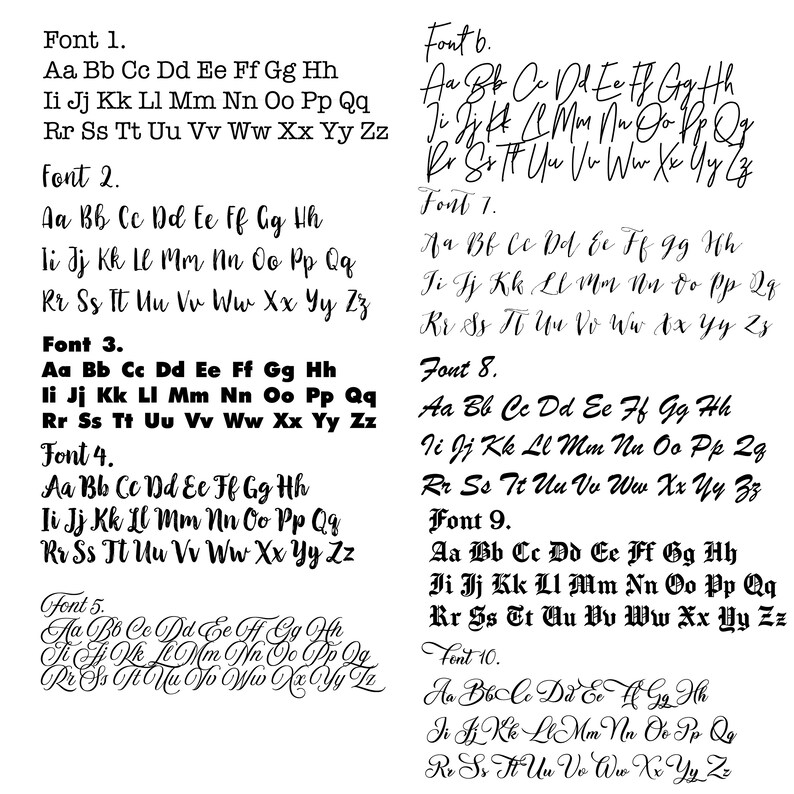 Font 1.
Aa Bb Cc Dd Ee Ff Gg Hh
Ii Jj Kk Ll Mm Nn Oo Pp Qq
Rr Ss Tt Uu Vv Ww Xx Yy Zz
Font 2.
Aa Bb Cc Dd Ee Ff Gg Hh
Ii Jj Kk Ll Mm Nn Oo Pp Qq
Rr Ss Tt Uu Vv Ww Xx Yy Zz
Font 3.
Aa Bb Cc Dd Ee Ff Gg Hh
Ii Jj Kk Ll Mm Nn Oo Pp Qq
Rr Ss Tt Uu Vv Ww Xx Yy Zz
Font 4.
Aa Bb Cc Dd Ee Ff Gg Hh
Ii Jj Kk Ll Mm Nn Oo Pp Qq
Rr Ss Tt Uu Vv Ww Xx Yy Zz
Font 5.
Aa Bb Cc Dd Ee Ff Gg Hh
Ii Jj Kk Ll Mm Nn Oo Pp Qq
Rr Ss Tt Uu Vv Ww Xx Yy Zz
Font 6.
Aa Bb Cc Dd Ee Ff Gg Hh
Ii Jj Kk Ll Mm Nn Oo Pp Qq
Rr Ss Tt Uu Vv Ww Xx Yy Zz
Font 7.
Aa Bb Cc Dd Ee Ff Gg Hh
Ii Jj Kk Ll Mm Nn Oo Pp Qq
Rr Ss Tt Uu Vv Ww Xx Yy Zz
Font 8.
Aa Bb Cc Dd Ee Ff Gg Hh
Ii Jj Kk Ll Mm Nn Oo Pp Qq
Rr Ss Tt Uu Vv Ww Xx Yy Zz
Font 9.
Aa Bb Cc Dd Ee Ff Gg Hh
Ii Jj Kk Ll Mm Nn Oo Pp Qq
Rr Ss Tt Uu Vv Ww Xx Yy Zz
Font 10.
Aa Bb Cc Dd Ee Ff Gg Hh
Ii Jj Kk Ll Mm Nn Oo Pp Qq
Rr Ss Tt Uu Vv Ww Xx Yy Zz